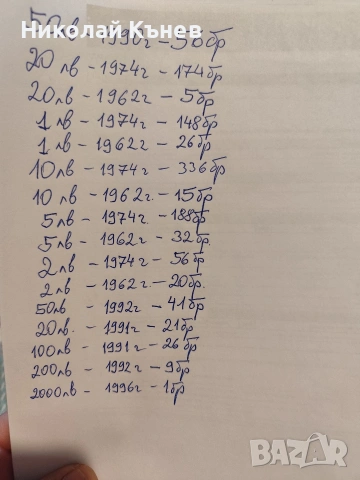 Николай Кънев
50лв - 1990г - 56бр
20лв - 1974г - 174бр
20лв - 1962г - 5бр
1лв - 1974г - 148бр
1лв - 1962г - 26бр
10лв - 1974г - 336бр
10лв - 1962г - 15бр
5лв - 1974г - 188бр
5лв - 1962г - 32бр.
2лв - 1974г - 56бр
2лв - 1962г - 20бр.
50лв - 1992г - 41бр
20лв. - 1991г - 21бр
100лв - 1991г - 26бр
200лв - 1992г - 9бр
2000лв - 1996г - 1бр
BAZAR